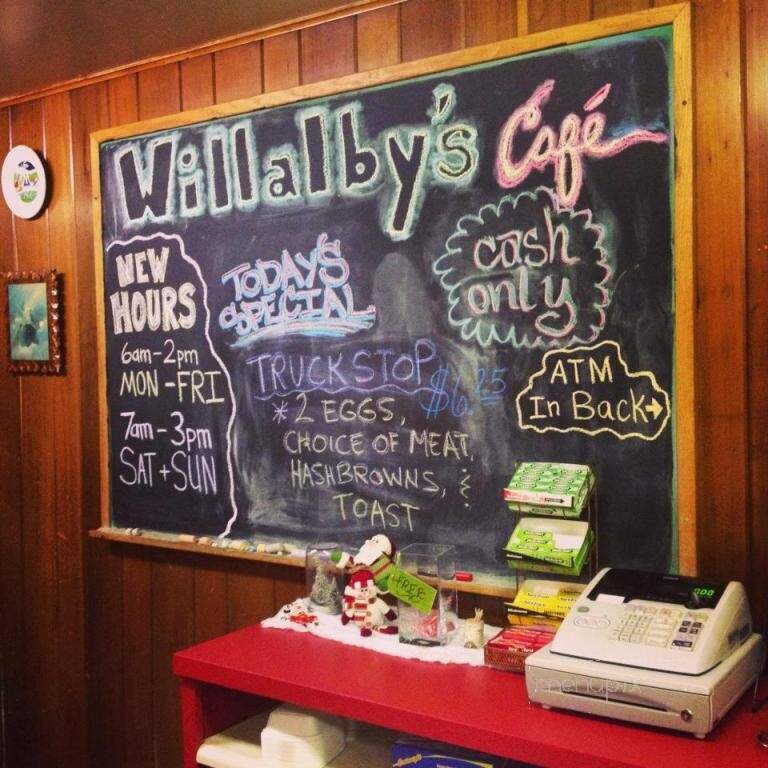 Willalby's Café
NEW
HOURS
6am-2pm
MON-FRI
7am-3pm
SAT+SUN
TODAY'S
SPECIAL
TRUCK STOP $6.25
* 2 EGGS,
CHOICE OF MEAT,
HASHBROWNS, &
TOAST
cash
only
ATM
In Back→
FREE
menupix